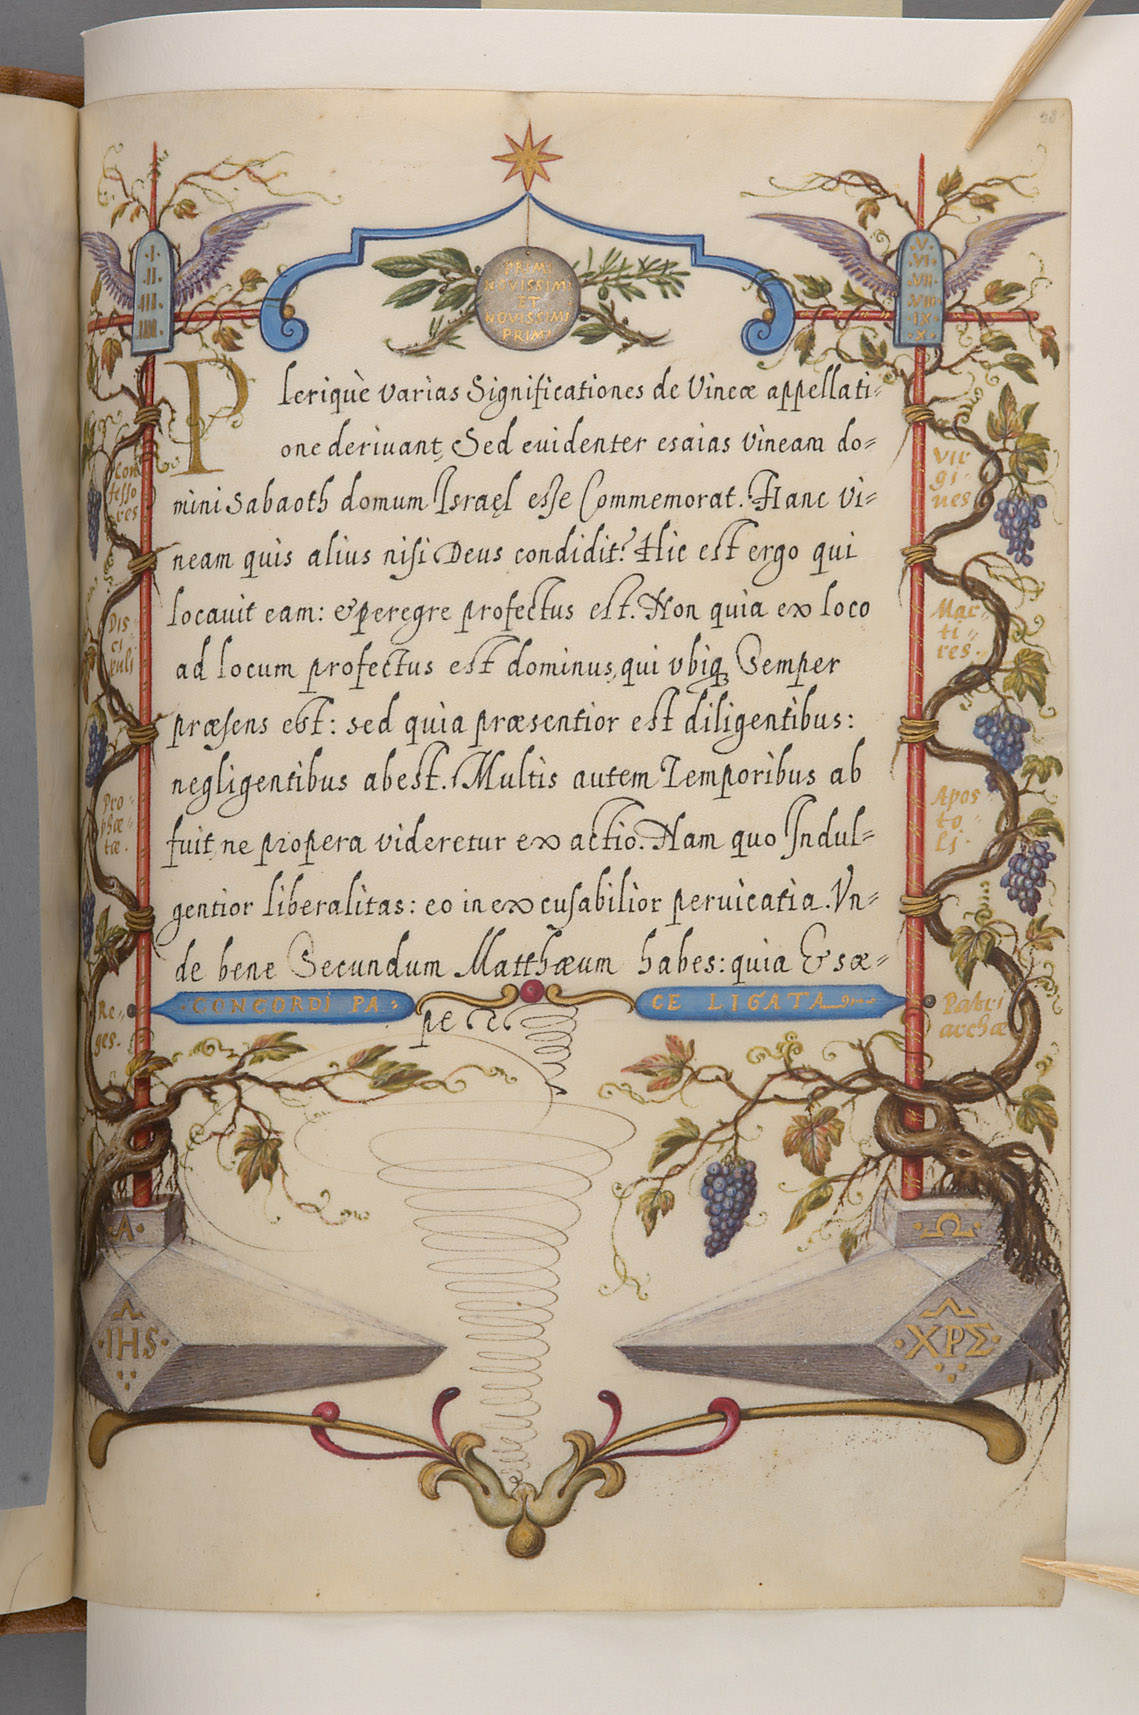 28
PRIMI
NOVISSIMI
ET
NOVISSIMI
PRIMI
.I.
.II.
.III.
.IIII.
.V.
.VI.
.VII.
.VIII.
.IX.
.X.
Plerique varias Significationes de Vineæ appellati=
one deriuant, Sed euidenter esaias vineam do=
mini Sabaoth domum Israel esse Commemorat. Hanc vi=
neam quis alius nisi Deus condidit? Hic est ergo qui
locauit eam: & peregre profectus est. Non quia ex loco
ad locum profectus est dominus, qui vbiq Semper
præsens est: sed quia præsentior est diligentibus:
negligentibus abest. Multis autem Temporibus ab
fuit, ne propera videretur exactio. Nam quo Indul=
gentior liberalitas: eo inexcusabilior peruicatia. Vn=
de bene Secundum Matthæum habes: quia & sæ=
pe
CONCORDI PA=
CE LIGATA
Con
fesso
res
Dis=
ci=
puli
Pro=
phæ=
tæ.
Re=
ges.
Vir
gi=
nes
Mar=
ti=
res.
Apos
to=
li.
Patri
archæ
·A·
·Ω·
·IHS·
·XPΣ·